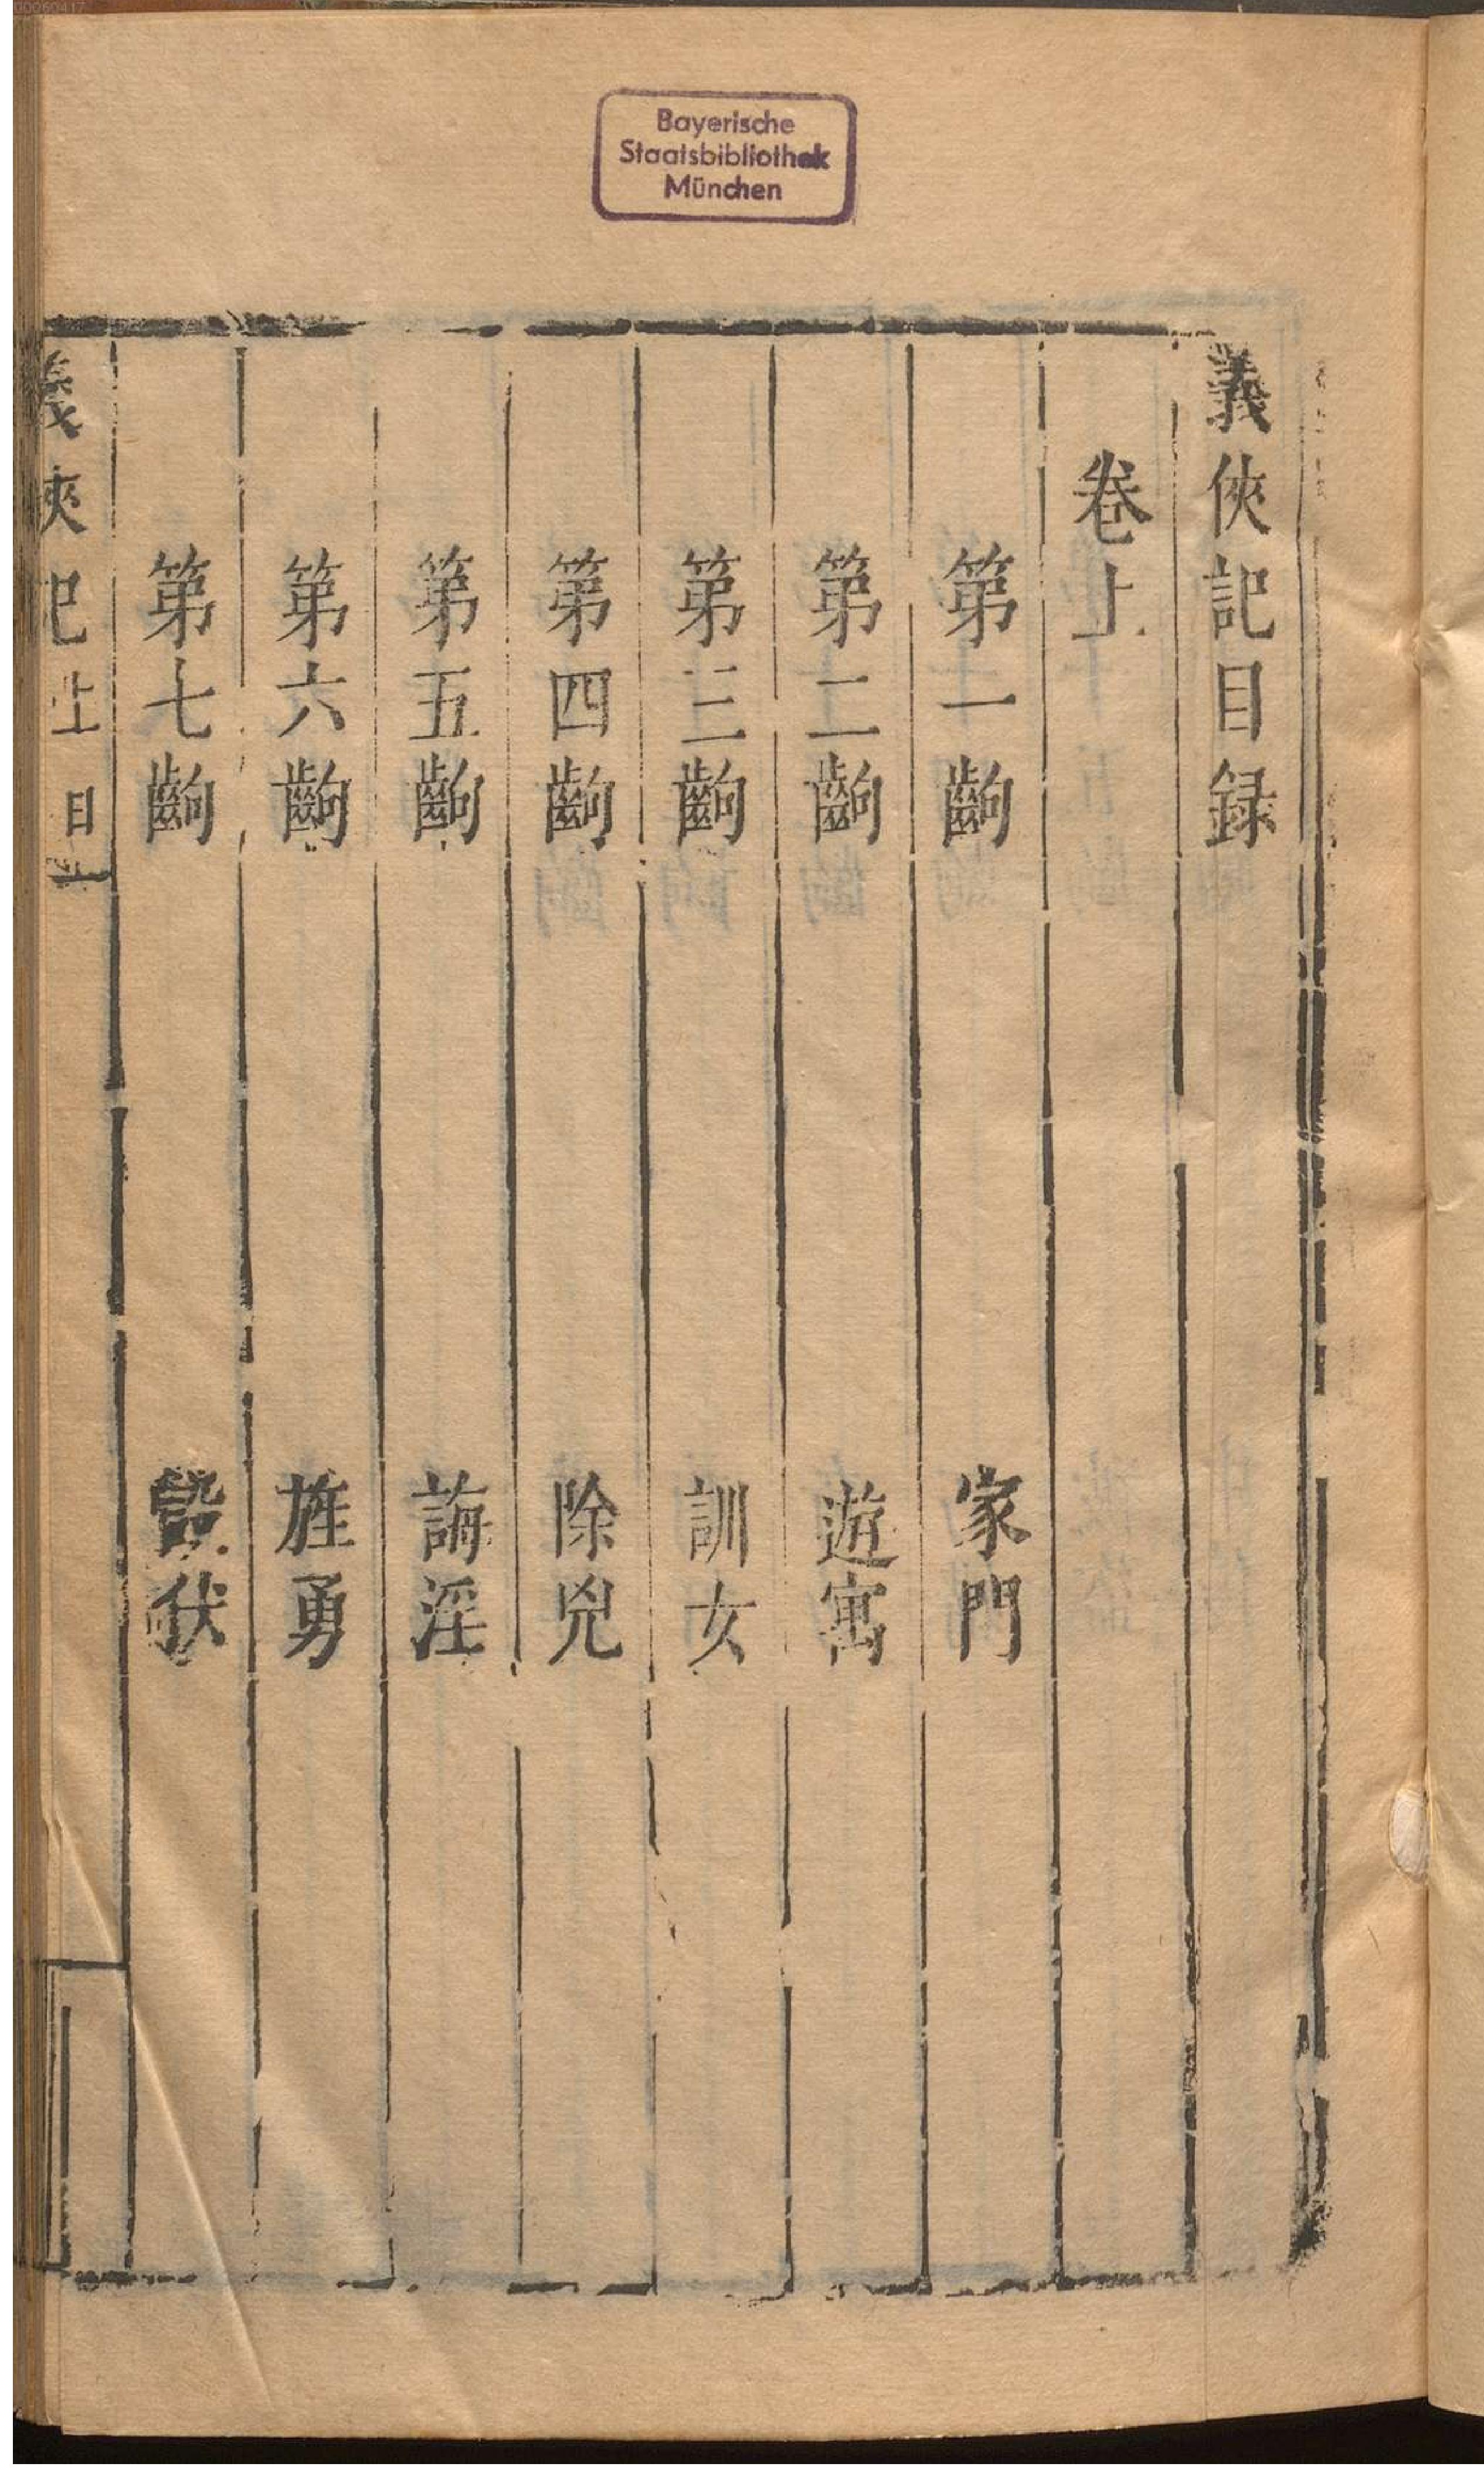 00060417
Bayerische
Staatsbibliothek
München
義俠記目録
卷上
第一齣 家門
第二齣 遊寓
第三齣 訓女
第四齣 除兇
第五齣 誨淫
第六齣 旌勇
第七齣 釁伏
義俠記 上 目